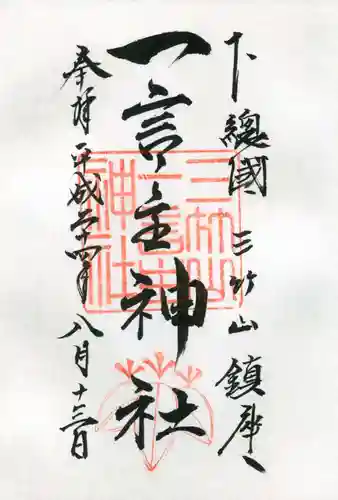 下總國 三竹山 鎮座
一言主神社
奉拝 平成二十四年 八月十三日
三竹山
一言主
神社